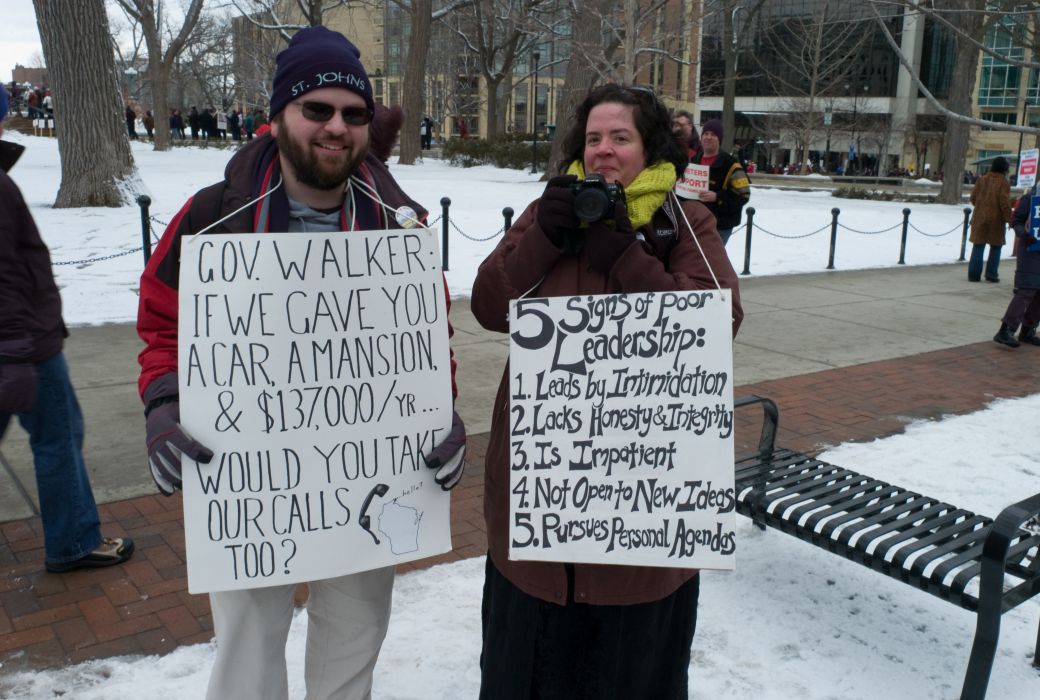 ST. JOHNS
GOV. WALKER:
IF WE GAVE YOU
A CAR, A MANSION,
& $137,000/YR...
WOULD YOU TAKE
OUR CALLS
TOO?
hello?
5 Signs of Poor
Leadership:
1. Leads by Intimidation
2. Lacks Honesty & Integrity
3. Is Impatient
4. Not Open to New Ideas
5. Pursues Personal Agendas